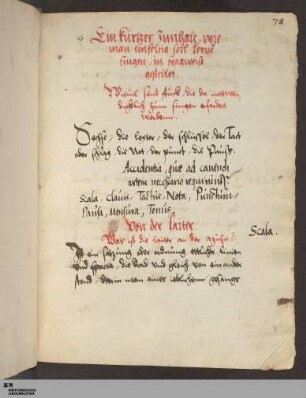 78
Ein kurtzer Innhalt, wie
man einfeltig soll lernē
singen, in fragweiß
gestellet.
Wieuil sind stuck die do
zum singen erfordert
werdenn.
Sechs, die leiter, der schlüssel der Tact
oder schlag die Not, der punct, die Pauß.
Accidentia, quæ ad canendi
artem necessario requiruntur
Scala, Clavis, Tactus, Nota, Punctum,
Pausa, Mensura, Tonus
Von der laiter
Was ist die laiter an der
Scala.
Ist ein satzung oder ordnung etlicher linien
vnd spacia die und gleich von ein ander
stand, darin man eines gesangs